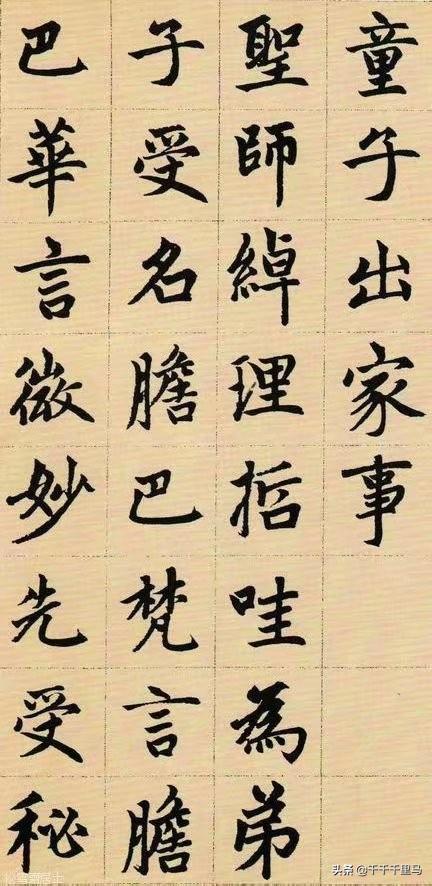 童子出家事
聖師綽理哲哇為弟
子受名膽巴梵言膽
巴華言微妙先受秘
头条@千千千里马